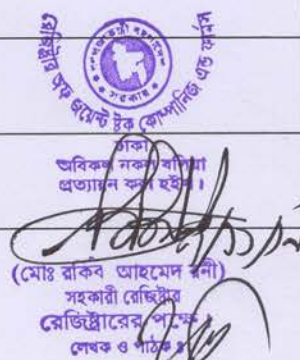 গণপ্রজাতন্ত্রী বাংলাদেশ
সরকার
রেজিস্ট্রার অফ জয়েন্ট ষ্টক কোম্পানিজ এন্ড ফার্মস
ঢাকা
অবিকল নকল বলিয়া
প্রত্যায়ন করা হইল।
(মোঃ রকিব আহমেদ রনী)
সহকারী রেজিষ্ট্রার
রেজিষ্ট্রারের পক্ষে
লেখক ও পাঠক ঃ